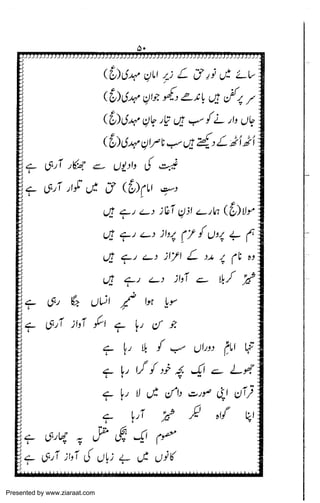 ۵۰
سائے میں نورِ حق کے زیرِ امانِ مہدی(عج)
سر پر کفن ہیں باندھے دیکھو جوانِ مہدی(عج)
جاں وارنے کو سب ہیں تیار جانِ مہدی(عج)
اُٹھ اُٹھ کے دیکھتے ہیں سب ناصرانِ مہدی(عج)
غیبت کی وادیوں سے جھنکار آرہی ہے
دستِ امامِ(عج) حق میں تلوار آرہی ہے
مولا(عج) ہمارے اذنِ آغاز دے رہے ہیں
ہم بے پروں کو عزمِ پرواز دے رہے ہیں
وہ نام پر مدد کے اعزاز دے رہے ہیں
شبیرؑ کربلا سے آواز دے رہے ہیں
سویا ہوا ضمیرِ انساں جگا رہی ہے
جو سن رہا ہے اسکو آواز آرہی ہے
تنہا امامِؑ دوراں سب کو بلا رہا ہے
جھولے سے ایک بچہ خود کو گرا رہا ہے
قرآن اپنی صورت دامن میں لا رہا ہے
اپنا گواہ لیکر شبیرؑ آرہا ہے
معصوم ایک ہچکی مقتل پہ چھارہی ہے
کانوں میں بے زباں کی آواز آرہی ہے
Presented by www.ziaraat.com